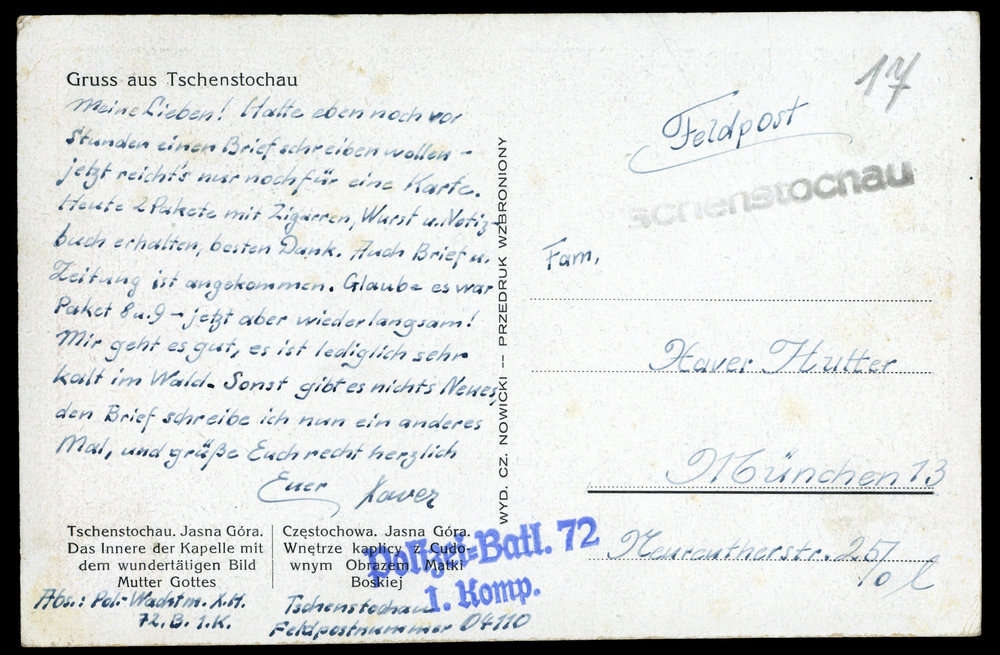 Gruss aus Tschenstochau
Meine Lieben! Hatte eben noch vor
Stunden einen Brief schreiben wollen –
jetzt reicht's nur noch für eine Karte.
Heute 2 Pakete mit Zigarren, Wurst u. Notiz-
buch erhalten, besten Dank. Auch Brief u.
Zeitung ist angekommen. Glaube es war
Paket 8 u. 9 – jetzt aber wieder langsam!
Mir geht es gut, es ist lediglich sehr
kalt im Wald. Sonst gibt es nichts Neues,
den Brief schreibe ich nun ein anderes
Mal, und grüße Euch recht herzlich
Euer Xaver
Tschenstochau. Jasna Góra.
Das Innere der Kapelle mit
dem wundertätigen Bild
Mutter Gottes
Częstochowa. Jasna Góra.
Wnętrze kaplicy z Cudo-
wnym Obrazem Matki
Boskiej
Abs.: Pol.-Wachtm. X.H.
72. B. 1. K.
Tschenstochau
Feldpostnummer 04110
WYD. CZ. NOWICKI — PRZEDRUK WZBRONIONY
Polizei-Batl. 72
1. Komp.
17
Feldpost
Tschenstochau
Fam.
Xaver Hutter
München 13
25/0 l